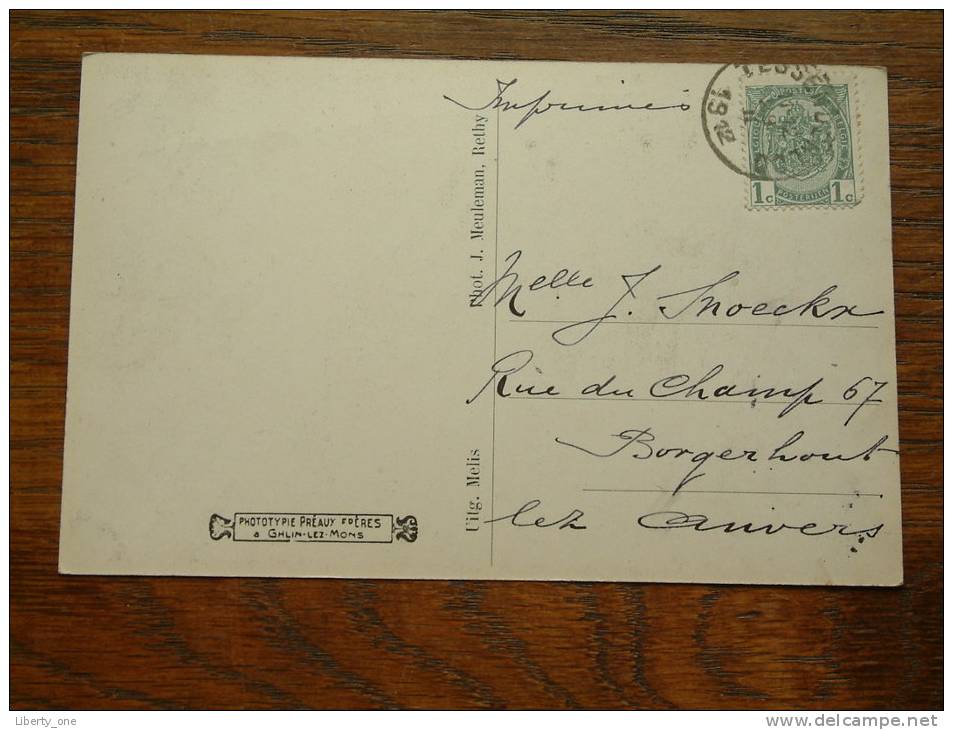 Imprimés
1912
1c 1c
POSTERIJEN
Melle J. Snoeckx
Rue du Champ 67
Borgerhout
lez Anvers
Phot. J. Meuleman, Rethy
Uitg. Melis
PHOTOTYPIE PRÉAUX FRÈRES
à GHLIN-LEZ-MONS
Liberty_one
delcampe.net